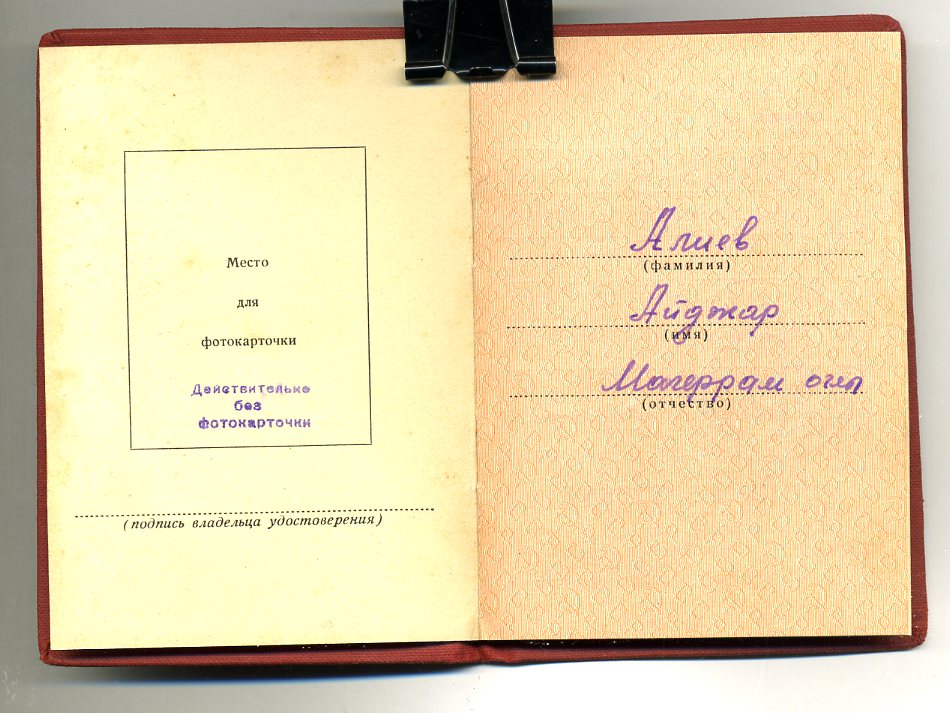 Место
для
фотокарточки
Действительно
без
фотокарточки
(подпись владельца удостоверения)
Алиев
(фамилия)
Айджар
(имя)
Магеррам оглы
(отчество)